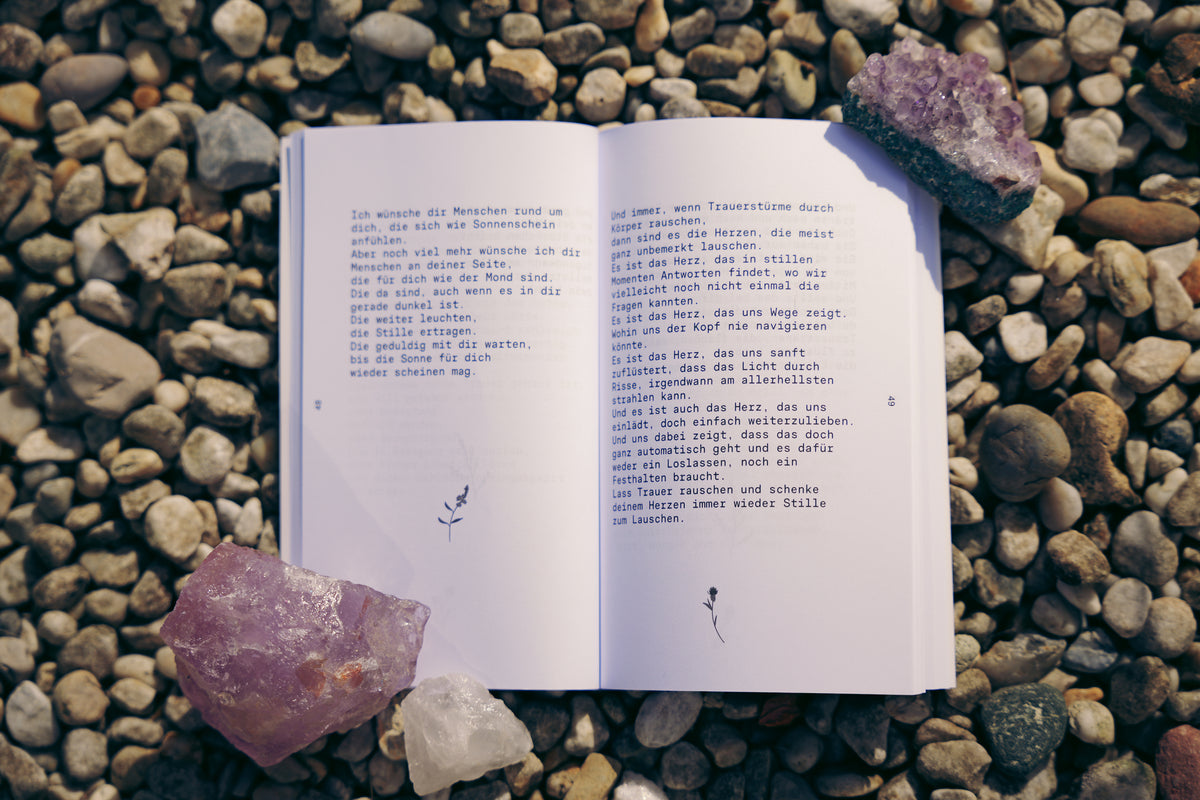 Ich wünsche dir Menschen rund um
dich, die sich wie Sonnenschein
anfühlen.
Aber noch viel mehr wünsche ich dir
Menschen an deiner Seite,
die für dich wie der Mond sind.
Die da sind, auch wenn es in dir
gerade dunkel ist.
Die weiter leuchten,
die Stille ertragen.
Die geduldig mit dir warten,
bis die Sonne für dich
wieder scheinen mag.
Und immer, wenn Trauerstürme durch
Körper rauschen,
dann sind es die Herzen, die meist
ganz unbemerkt lauschen.
Es ist das Herz, das in stillen
Momenten Antworten findet, wo wir
vielleicht noch nicht einmal die
Fragen kannten.
Es ist das Herz, das uns Wege zeigt.
Wohin uns der Kopf nie navigieren
könnte.
Es ist das Herz, das uns sanft
zuflüstert, dass das Licht durch
Risse, irgendwann am allerhellsten
strahlen kann.
Und es ist auch das Herz, das uns
einlädt, doch einfach weiterzulieben.
Und uns dabei zeigt, dass das doch
ganz automatisch geht und es dafür
weder ein Loslassen, noch ein
Festhalten braucht.
Lass Trauer rauschen und schenke
deinem Herzen immer wieder Stille
zum Lauschen.
49